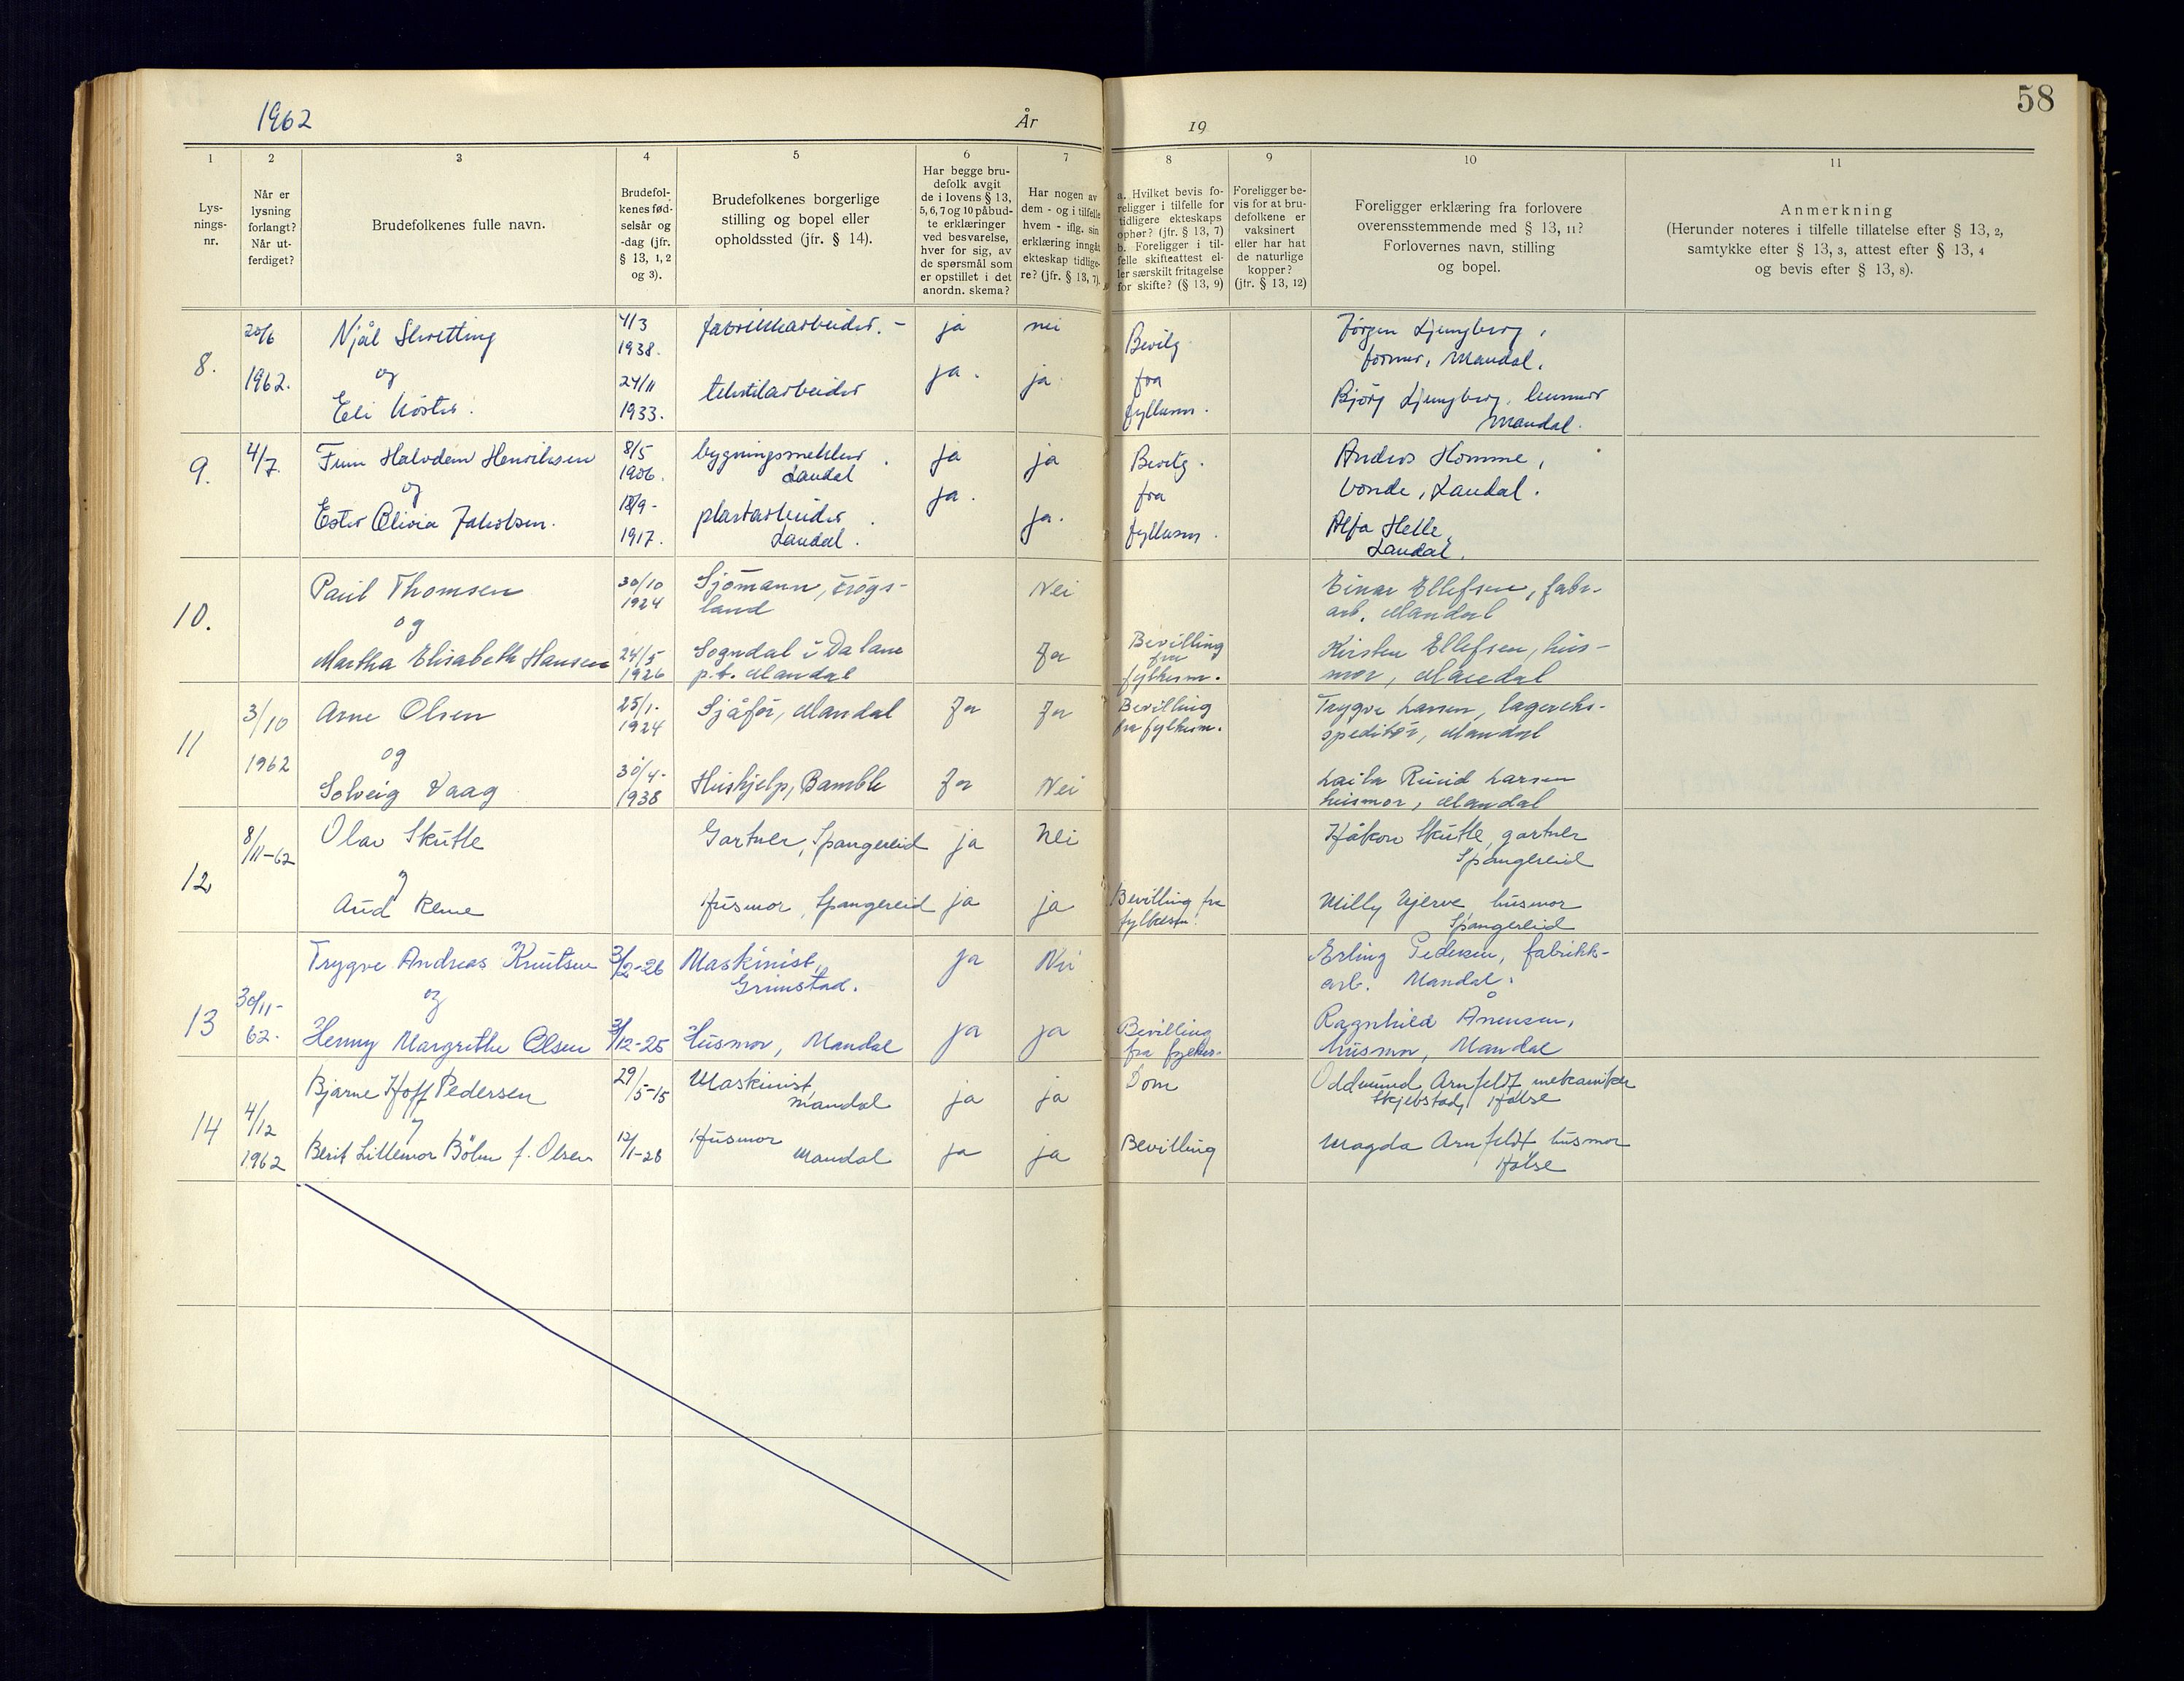 1962
År
19
58
1
2
3
4
5
6
7
8
9
10
11
Lys-
nings-
nr.
Når er
lysning
forlangt?
Når ut-
ferdiget?
Brudefolkenes fulle navn.
Brudefol-
kenes fød-
selsår og
-dag (jfr.
§ 13, 1, 2
og 3).
Brudefolkenes borgerlige
stilling og bopel eller
opholdssted (jfr. § 14).
Har begge bru-
defolk avgit
de i lovens § 13,
5, 6, 7 og 10 påbud-
te erklæringer
ved besvarelse,
hver for sig, av
de spørsmål som
er opstillet i det
anordn. skema?
Har nogen av
dem - og i tilfelle
hvem - iflg. sin
erklæring inngått
ekteskap tidlige-
re? (jfr. § 13, 7).
a. Hvilket bevis fo-
religger i tilfelle for
tidligere ekteskaps
ophør? (jfr. § 13, 7)
b. Foreligger i til-
felle skifteattest el-
ler særskilt fritagelse
for skifte? (§ 13, 9)
Foreligger be-
vis for at bru-
defolkene er
vaksinert
eller har hat
de naturlige
kopper?
(jfr. § 13, 12)
Foreligger erklæring fra forlovere
overensstemmende med § 13, 11?
Forlovernes navn, stilling
og bopel.
Anmerkning
(Herunder noteres i tilfelle tillatelse efter § 13, 2,
samtykke efter § 13, 3, attest efter § 13, 4
og bevis efter § 13, 8).
8.
20/6
1962.
Njål
og
Eli
4/3
1938.
24/11
1933.
fabrikkarbeider. -
tekstilarbeider
ja
ja.
nei
ja
Bevilg
fra
fylkesm.
Jørgen Ljungberg,
former, Mandal.
Bjørg Ljungberg,
Mandal.
9.
4/7
Finn Halvdan Henriksen
og
Ester Olivia Jakobsen.
8/5
1906.
18/9-
1917.
bygningssnekker.
Laudal
plastarbeider.
Laudal.
ja
ja.
ja
ja.
Bevilg.
fra
fylkesm.
Anders Homme,
bonde, Laudal.
Alfa Helle,
Laudal.
10.
Paul Thomsen
og
Martha Elisabeth Hansen
30/10
1924
24/5
1926
Sjømann,
land
Sogndal i Dalane
p.t. Mandal
Nei
Ja
Bevilling
fra
fylkesm.
Einar Ellefsen, fabr.
arb. Mandal
Kirsten Ellefsen, hus-
mor, Mandal
11
3/10
1962
Arne Olsen
og
Solveig Vaag
25/1-
1924
30/4-
1938
Sjåfør, Mandal
Hushjelp, Bamble
Ja
Ja
Ja
Nei
Bevilling
fra fylkesm.
Trygve Larsen, lagereks-
peditør, Mandal
Laila Ruud Larsen
husmor, Mandal
12
8/11-62
Olav Skutle
og
Aud Rene
Gartner, Spangereid
Husmor, Spangereid
ja
ja
Nei
ja
Bevilling fra
fylkesm.
Håkon Skutle, gartner
Spangereid
Milly Gjerve husmor
Spangereid
13
30/11-
62.
Trygve Andreas Knutsen
og
Henny Margrethe Olsen
3/2-26
3/12-25
Maskinist,
Grimstad.
Husmor, Mandal
ja
ja
Nei
ja
Bevilling
fra fylkesm.
Erling Pedersen, fabrikk-
arb. Mandal.
Ragnhild Ånensen,
husmor, Mandal
14
4/12
1962
Bjarne Hoff Pedersen
og
Berit Lillemor Bøhn f. Olsen
29/5-15
12/1-28
Maskinist
Mandal
Husmor
Mandal
ja
ja
ja
ja
Dom
Bevilling
Oddmund Arnfeldt mekaniker
Skjebstad, Halse
Magda Arnfeldt husmor
Halse